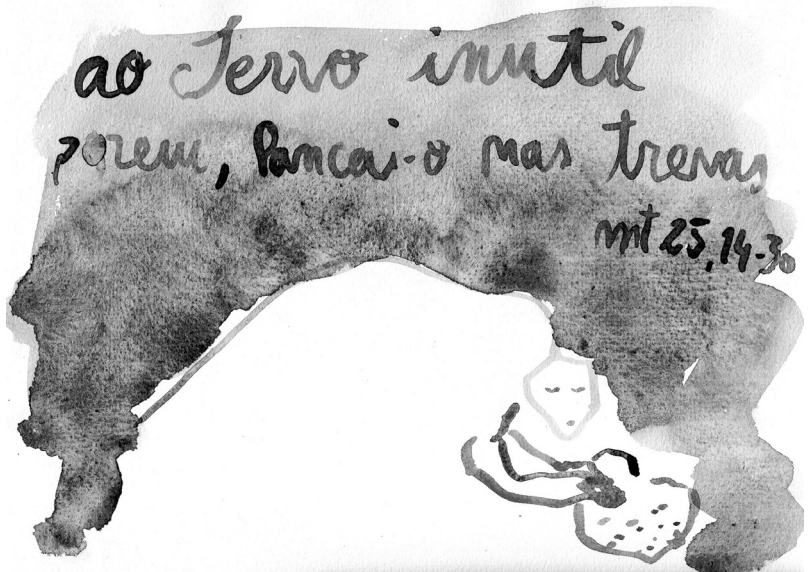 ao Servo inutil
porem, lancai-o nas trevas
mt 25,14-30